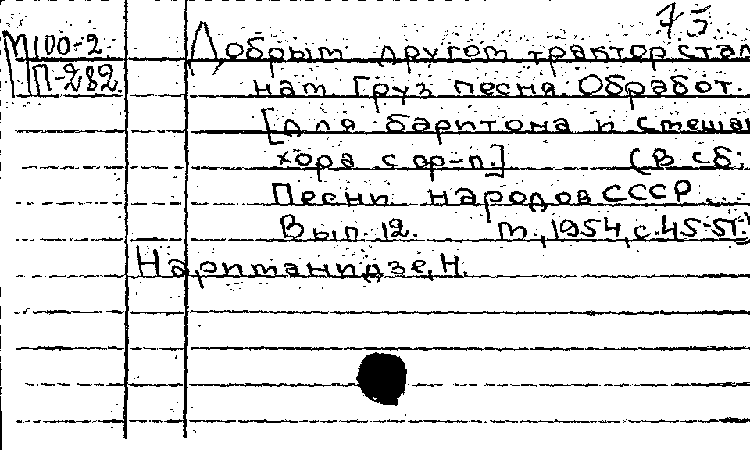 75
М100-2 Добрым другом трактор стал
П-282 нам Груз песня. Обработ.
[для баритона и смешан
хора с ор-п.] (В сб:
Песни народов СССР...
Вып. 12. М., 1954, с. 45-51.
Наритманидзе, Н.